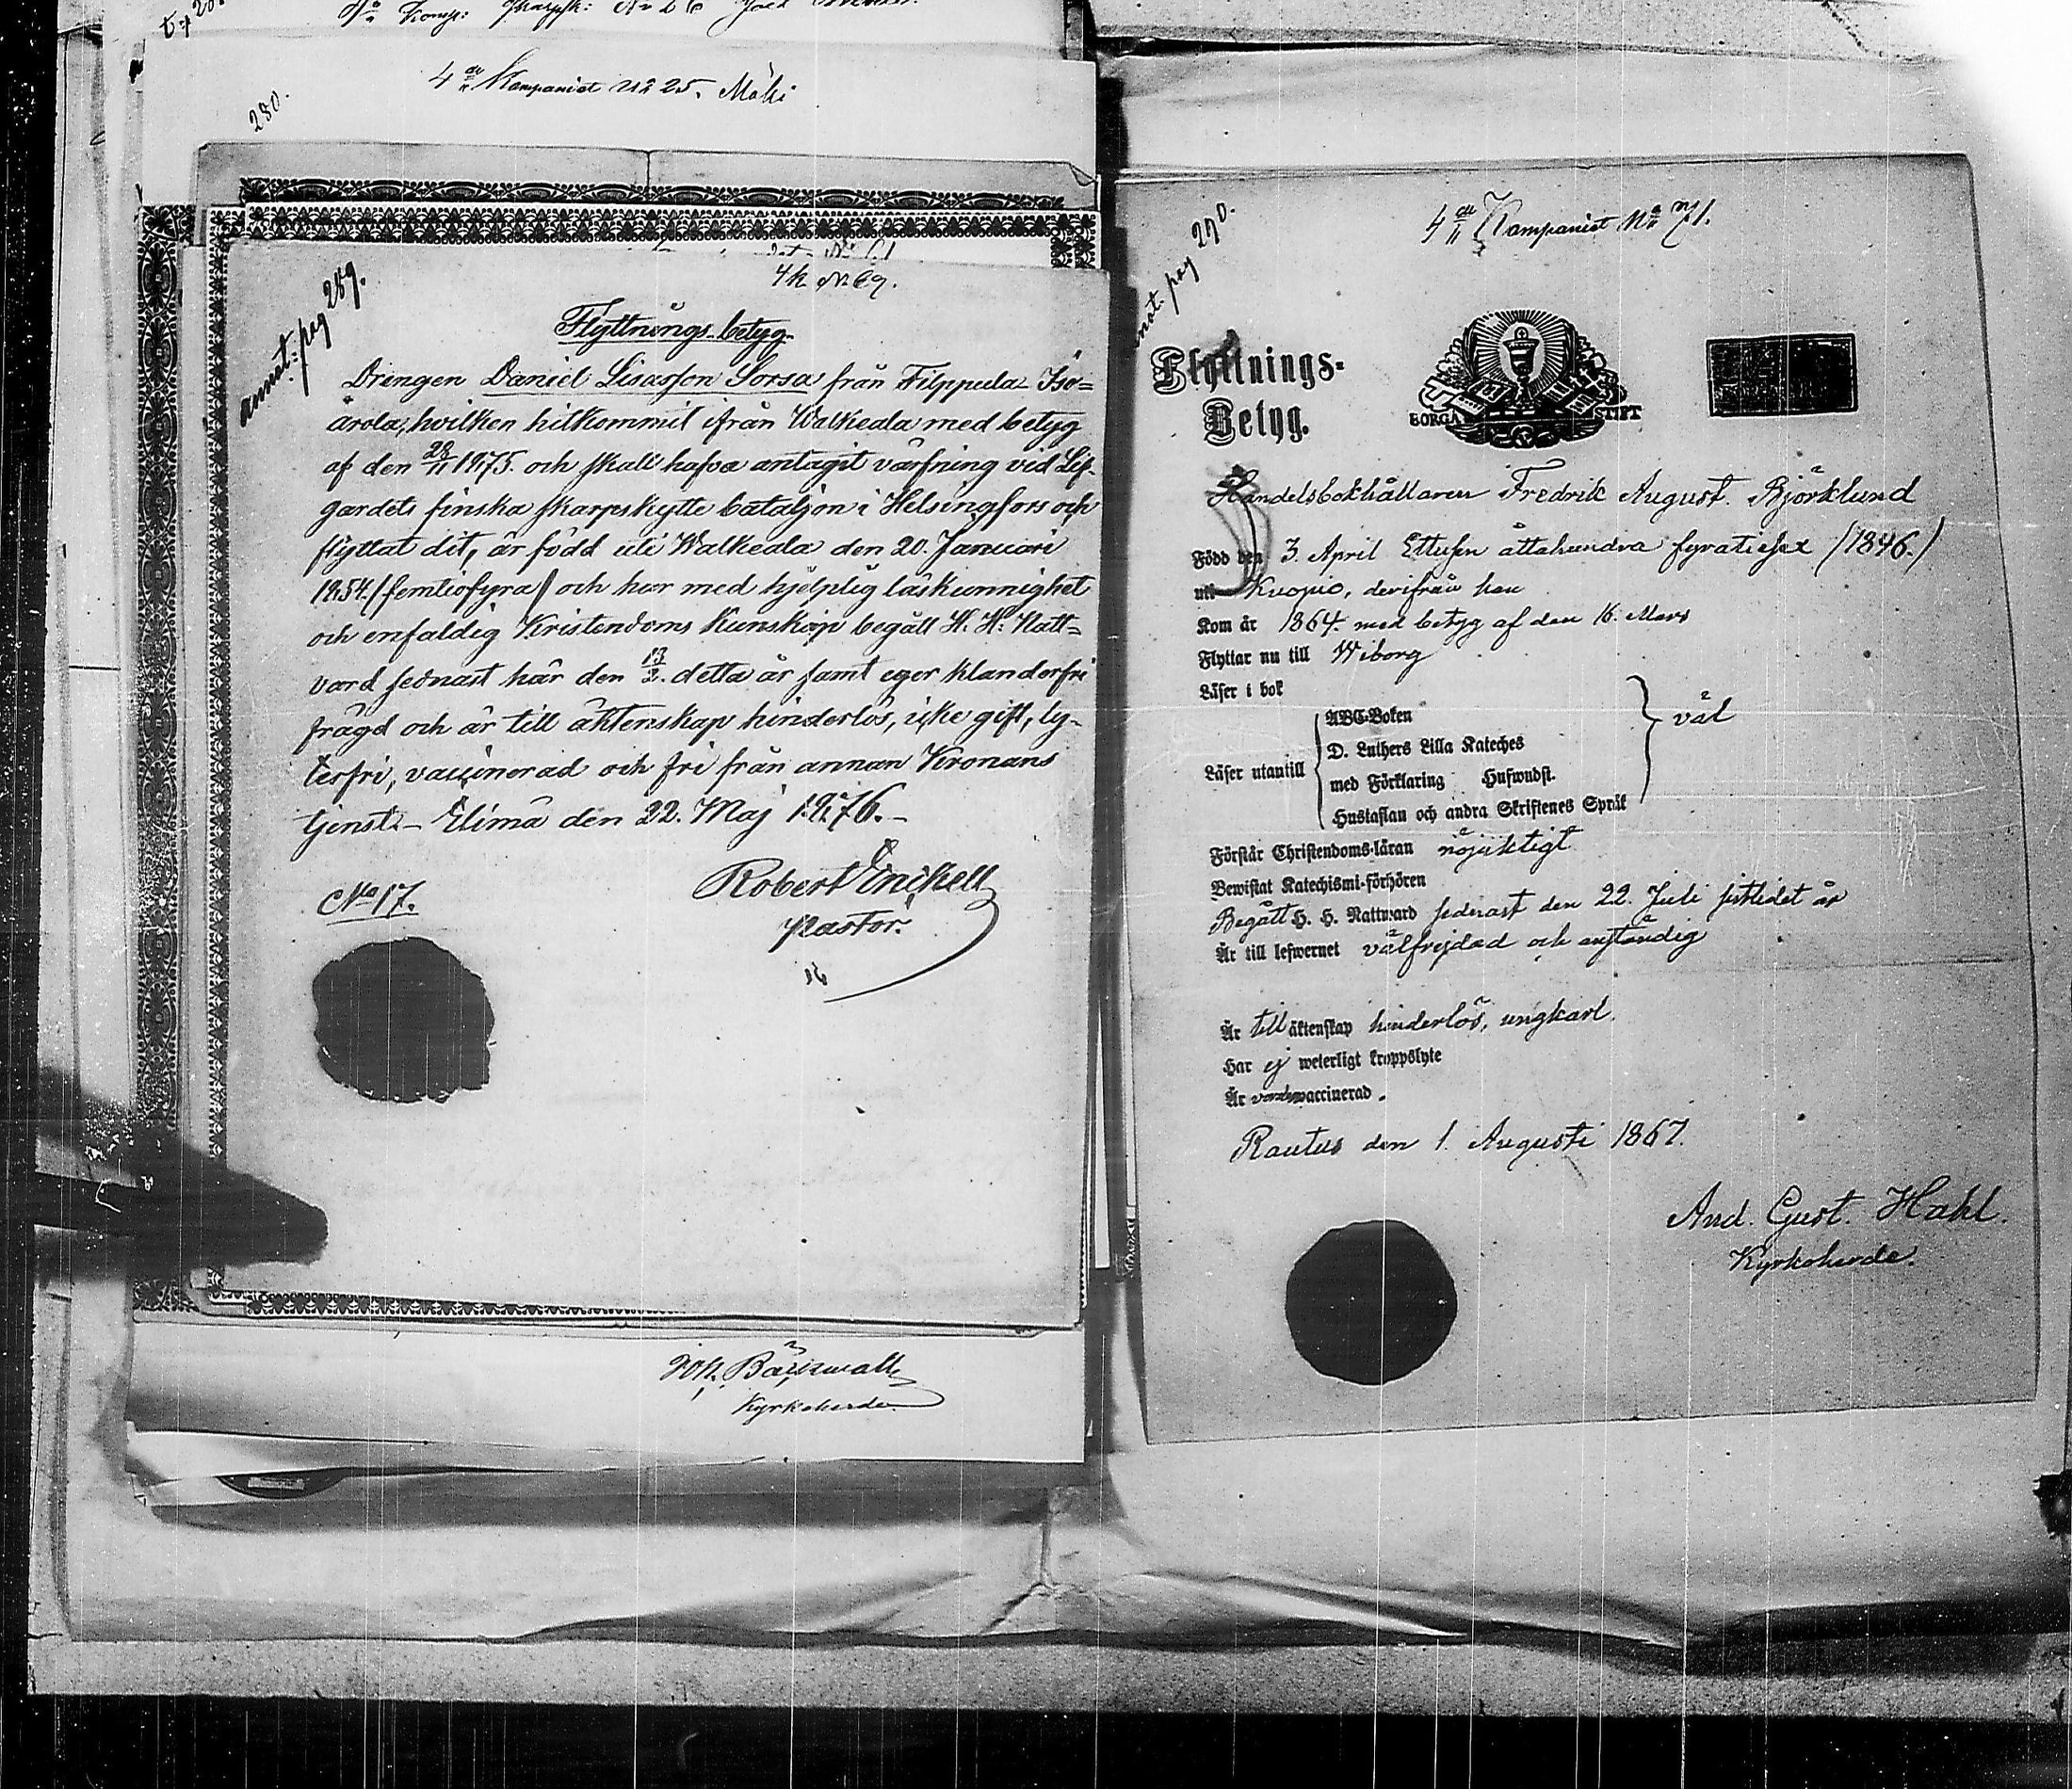 4de Kompaniet No 25. Mäki
280.
annot: pag 289.
4 k No 69.
Flyttnings-betyg.
Drengen Daniel Lisasson Sorsa från Filppula Iso=
arola, hvilken hitkommit ifrån Walkeala med betyg
af den 28/11 1875. och skall hafva antagit värfning vid Lif-
gardets finska skarpskytte bataljon i Helsingfors och
flyttat dit, är född uti Walkeala den 20. Januari
1854./femtiofyra/ och har med hjelplig läskunnighet
och enfaldig Kristendoms Kunskap begått H. H. Natt=
vard sednast här den 13/2. detta år samt eger klanderfri
frägd och är till äktenskap hinderlös, icke gift, ly-
tesfri, vaccinerad och fri från annan Kronans
tjenst.- Elimä den 22. Maj 1876.-
No 17.
Robert Enckell
Pastor.
Joh. Bäckwall
Kyrkoherde
annot. pag 290.
4de Kompaniet No 71.
Flyttnings-
Betyg.
BORGÅ STIFT
Handelsbokhållaren Fredrik August Björklund
Född den 3. April Ettusen åttahundra fyratiosex /1846./
uti Kuopio, derifrån han
Kom år 1864. med betyg af den 16. Mars
Flyttar nu till Wiborg
Läser i bok
Läser utantill
ABC-Boken
D. Luthers Lilla Kateches
med Förklaring Hufwudst.
Hustaflan och andra Skriftenes Språk
väl
Förstår Christendoms-läran nöjaktigt
Bewistat Katechismi-förhören
Begått H. H. Nattward sednast den 22. Juli sistlidet år
Är till lefwernet välfrejdad och anständig
Är till äktenskap hinderlös, ungkarl.
Har ej weterligt kroppslyte
Är waccinerad.
Rautus den 1. Augusti 1867.
And. Gust. Hahl.
Kyrkoherde.